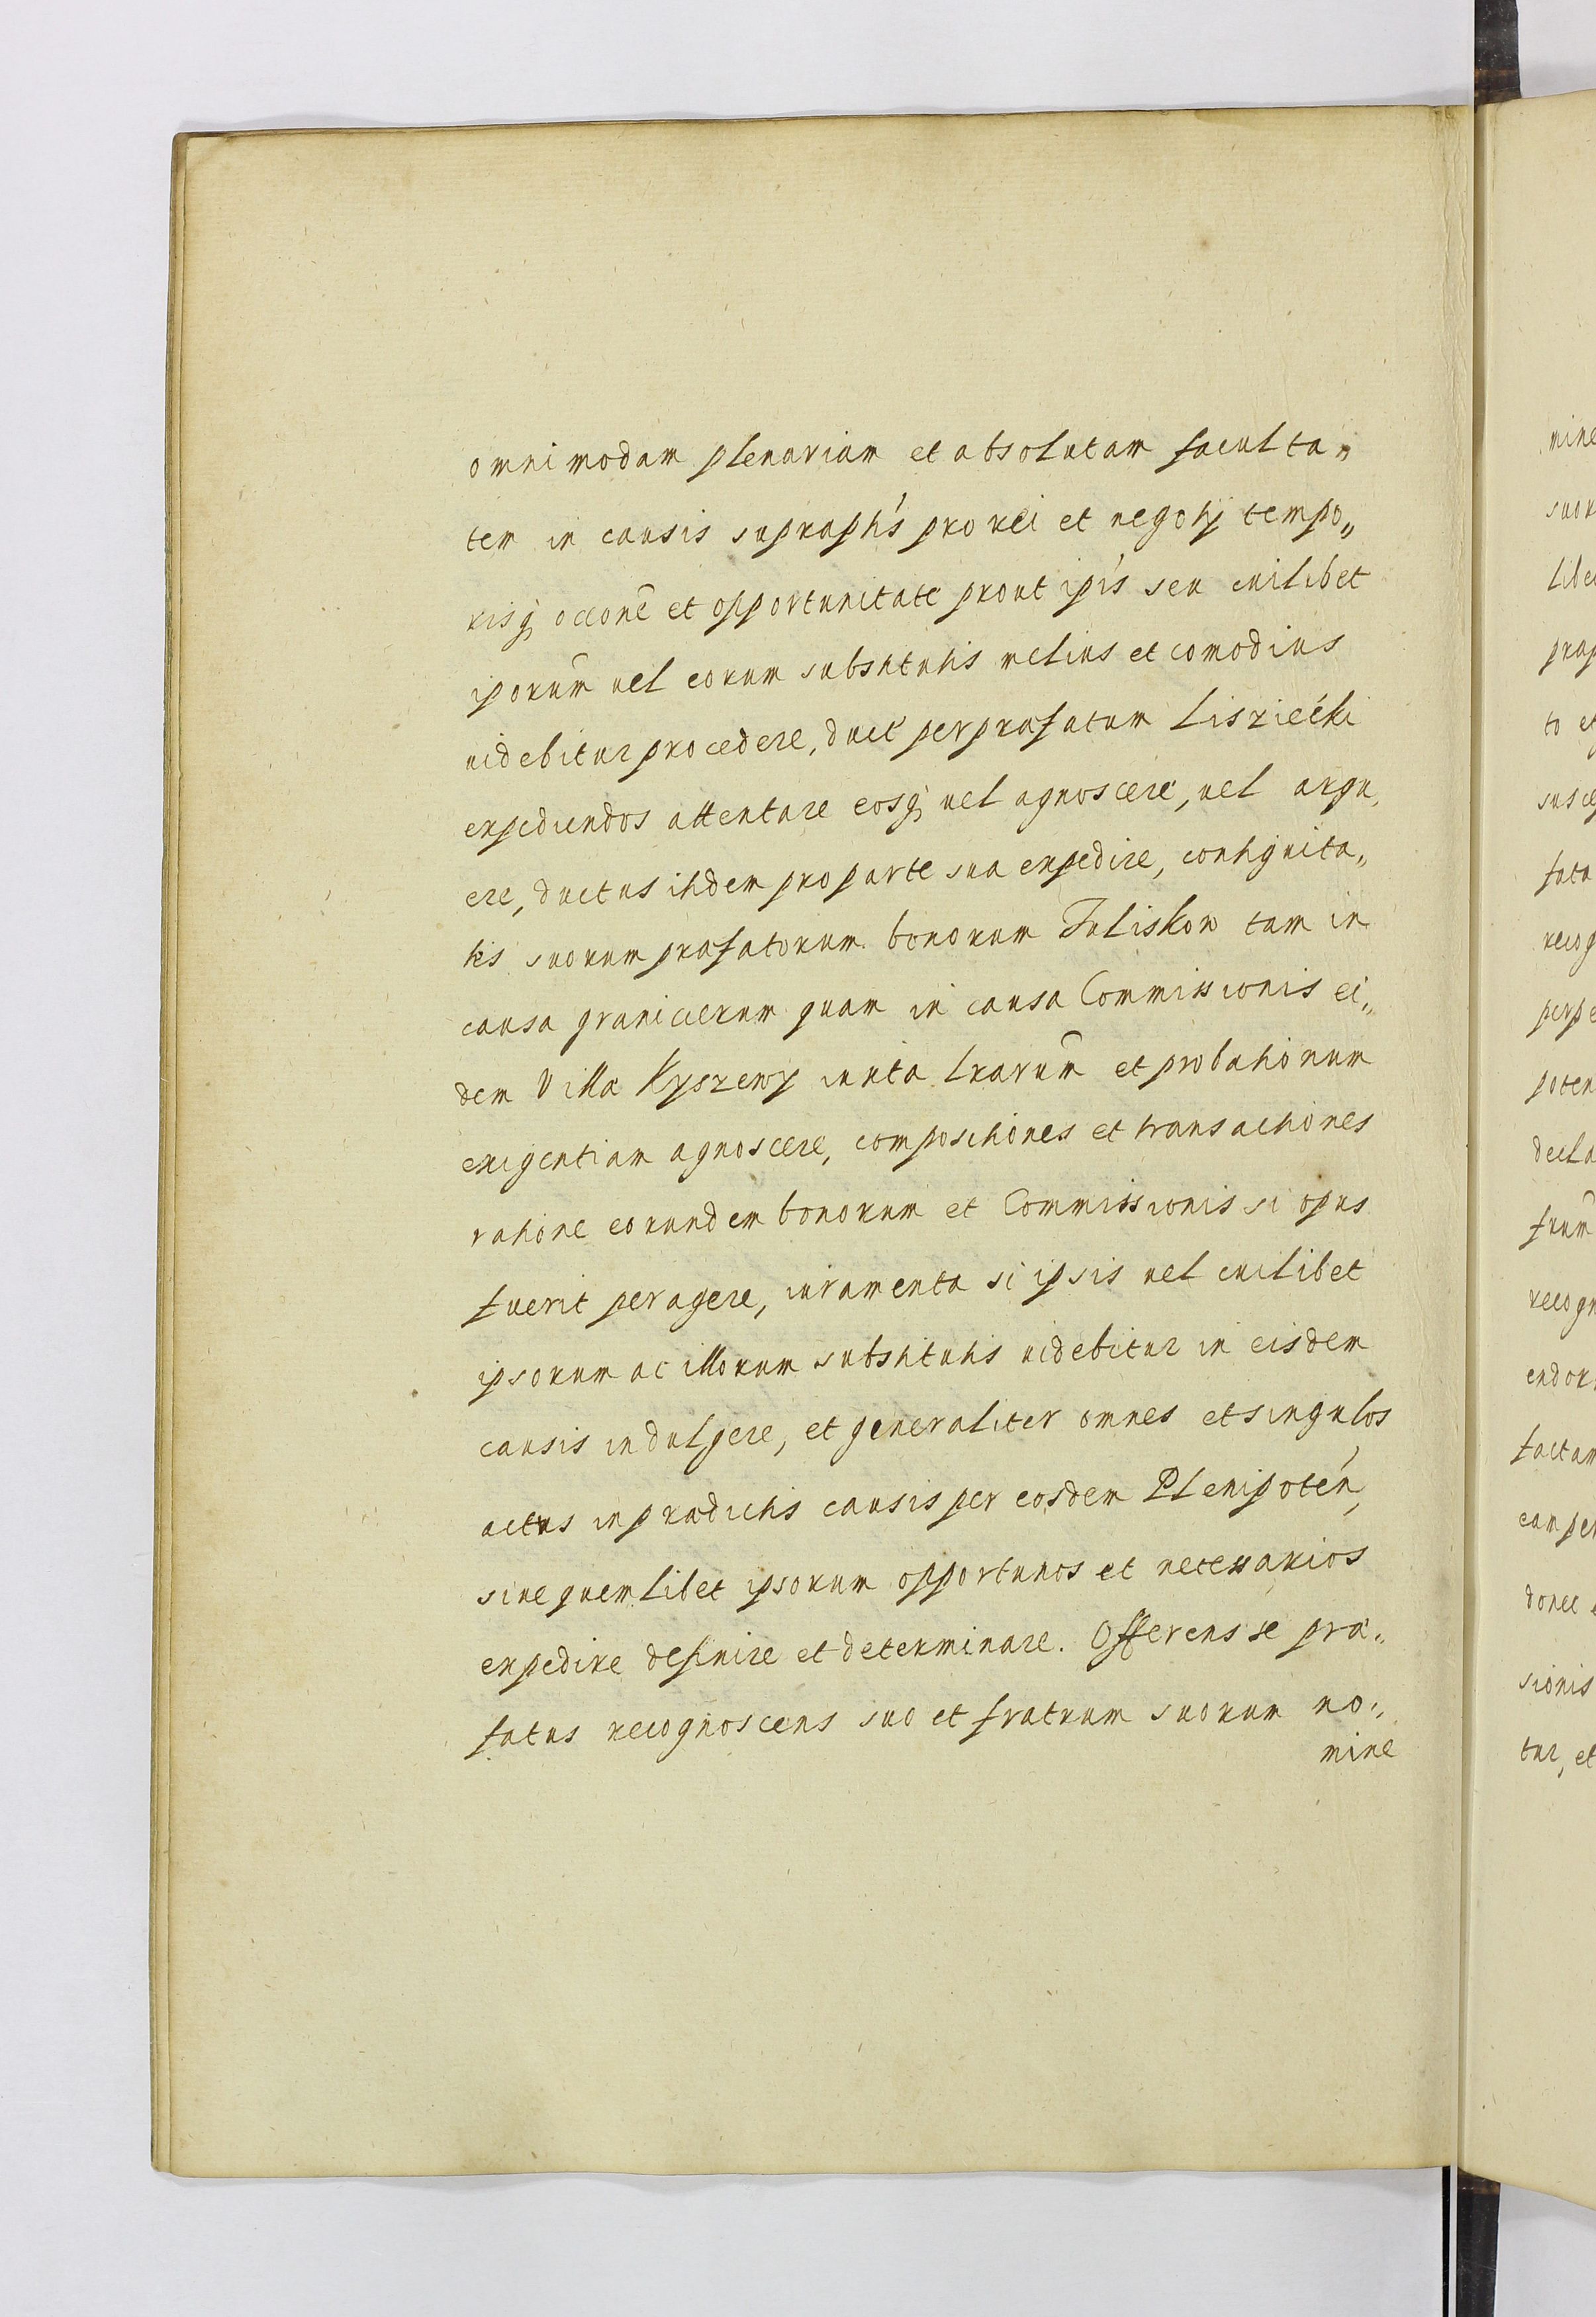 omnimodam plenariam et absolutam faculta„
tem in causis supraph's pro rei et negotij tempo„
risq occone et opportunitate prout ip's seu cuilibet
iporum uel eorum substitutis melius et comodius
uidebitur procedere, duct' per præfatum Lisziecki
expediendos attentare eosq uel agnoscere, uel argu„
ere, ductus itidem pro parte sua expedire, contiguita„
tis suorum præfatorum bonorum Tuliskow tam in
causa granicierum quam in causa Commissionis ei„
dem Villa Kyszewy iuxta lrarum et probationum
exigentiam agnoscere, compositiones et transactiones
ratione eorundem bonorum et Commissionis si opus
fuerit peragere, iuramenta si ipsis uel cuilibet
ipsorum ac illorum substitutis uidebitur in eisdem
causis indulgere, et generaliter omnes et singulos
actus in prædictis causis per eosdem Plenipoten,
siue quemlibet ipsorum opportunos et necessarios
expedire definire et determinare. Offerens se præ„
fatus recognoscens suo et fratrum suorum no„
mine